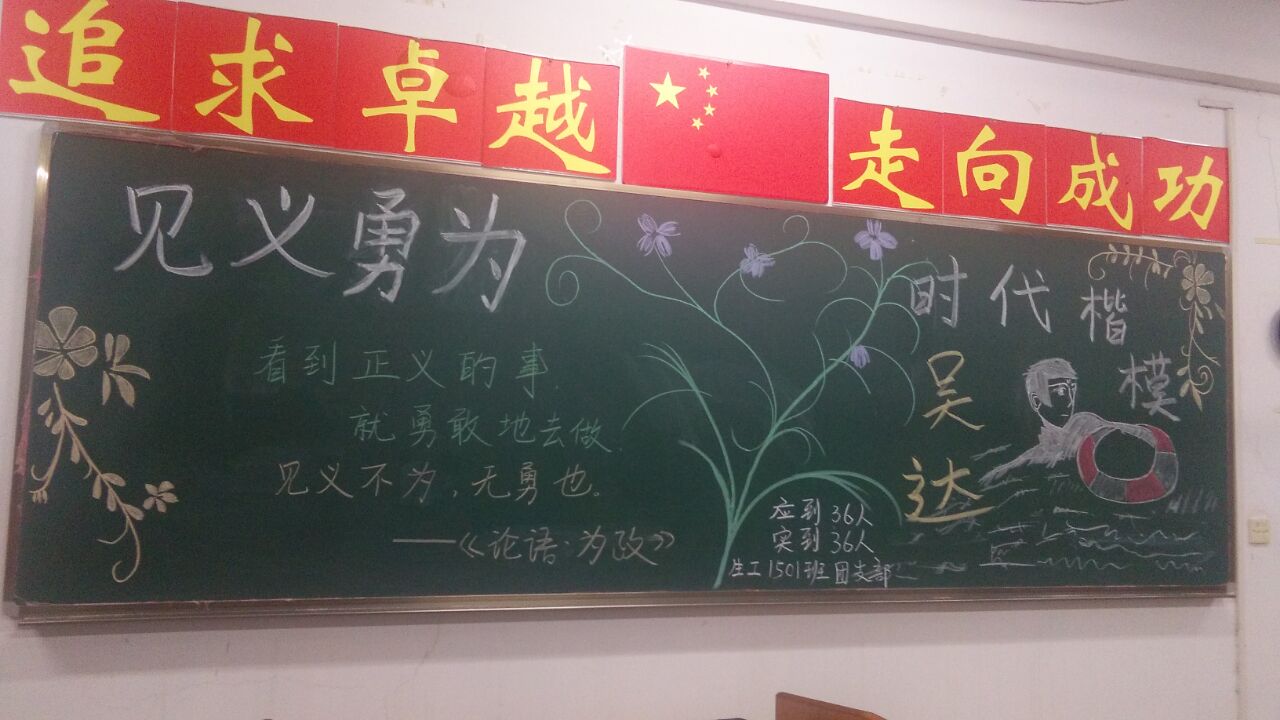 追求卓越
走向成功
见义勇为
看到正义的事
就勇敢地去做
见义不为，无勇也。
——《论语·为政》
时代楷模
吴达
应到36人
实到36人
生工1501班团支部